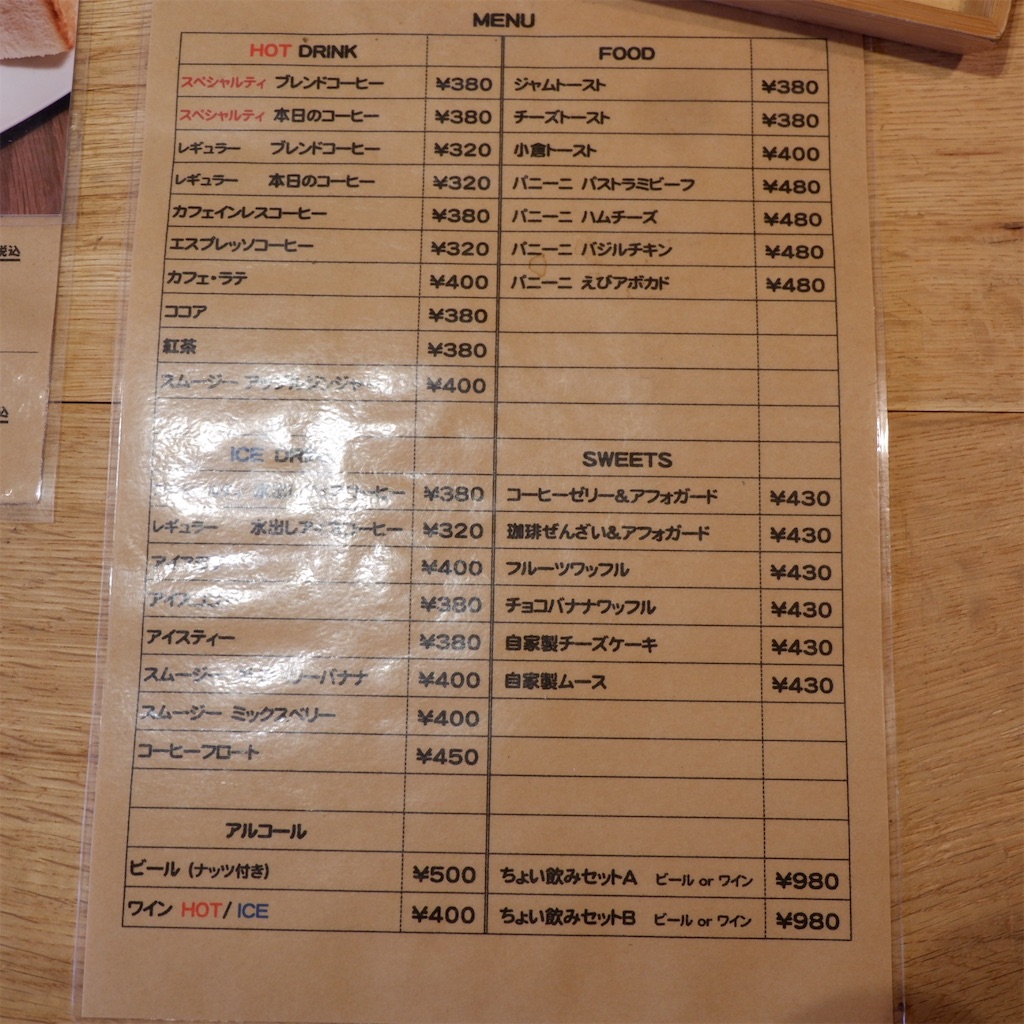 MENU
HOT DRINK
スペシャルティ ブレンドコーヒー ¥380
スペシャルティ 本日のコーヒー ¥380
レギュラー ブレンドコーヒー ¥320
レギュラー 本日のコーヒー ¥320
カフェインレスコーヒー ¥380
エスプレッソコーヒー ¥320
カフェ・ラテ ¥400
ココア ¥380
紅茶 ¥380
スムージー アップルジンジャー ¥400
ICE
水出しアイスコーヒー ¥380
レギュラー 水出しアイスコーヒー ¥320
¥400
¥380
アイスティー ¥380
スムージー ¥400
スムージー ミックスベリー ¥400
コーヒーフロート ¥450
アルコール
ビール (ナッツ付き) ¥500
ワイン HOT/ICE ¥400
FOOD
ジャムトースト ¥380
チーズトースト ¥380
小倉トースト ¥400
パニーニ パストラミビーフ ¥480
パニーニ ハムチーズ ¥480
パニーニ バジルチキン ¥480
パニーニ えびアボカド ¥480
SWEETS
コーヒーゼリー&アフォガード ¥430
珈琲ぜんざい&アフォガード ¥430
フルーツワッフル ¥430
チョコバナナワッフル ¥430
自家製チーズケーキ ¥430
自家製ムース ¥430
ちょい飲みセットA ビール or ワイン ¥980
ちょい飲みセットB ビール or ワイン ¥980
税込
込